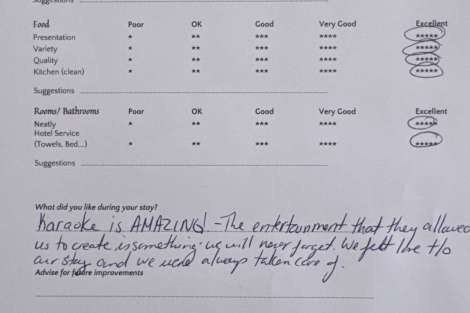 Suggestions
Food Poor OK Good Very Good Excellent
Presentation * ** *** **** *****
Variety * ** *** **** *****
Quality * ** *** **** *****
Kitchen (clean) * ** *** **** *****
Suggestions
Rooms/ Bathrooms Poor OK Good Very Good Excellent
Neatly * ** *** **** *****
Hotel Service
(Towels, Bed...) * ** *** **** *****
Suggestions
What did you like during your stay?
Karaoke is AMAZING! - The entertainment that they allowed
us to create is something we will never forget. We felt love t/o
our stay and we were always taken care of.
Advise for future improvements